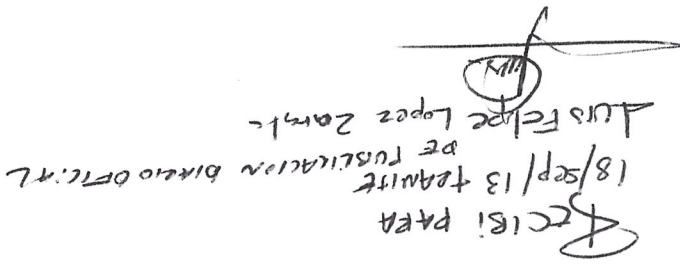 RECIBI PARA
18/sep/13 TRAMITE
DE PUBLICACION DIARIO OFICIAL
Luis Felipe Lopez Zarate